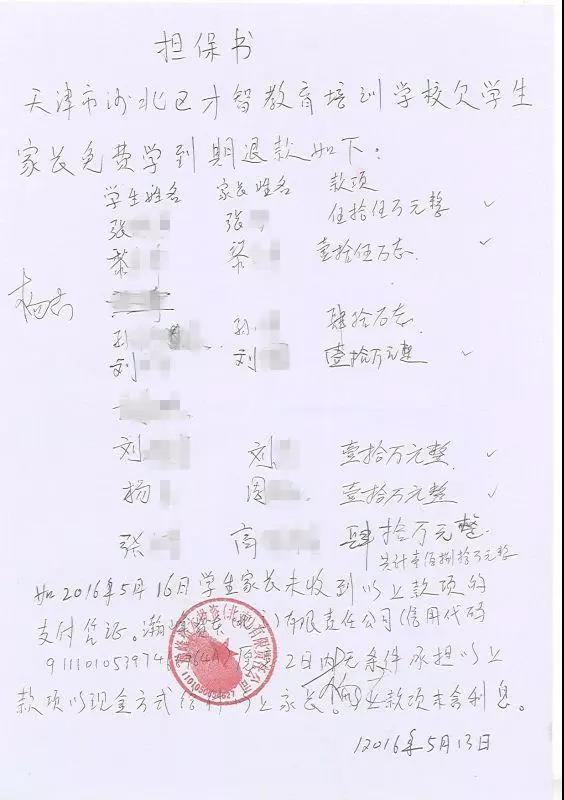 担保书
天津市河北区才智教育培训学校欠学生
家长免费学到期退款如下：
学生姓名 家长姓名 款项
张 张 伍拾伍万元整
黎 黎 壹拾伍万元
孙 孙 肆拾万元
刘 刘 壹拾万元整
刘 刘 壹拾万元整
杨 周 壹拾万元整
张 高 肆拾万元整
共计壹佰捌拾万元整
如2016年5月16日学生家长未收到以上款项的
支付凭证。瀚 有限责任公司(信用代码
91110105397 2日内无条件承担以上
款项以现金方式 以上家长。以上款项未含利息。
2016年5月13日